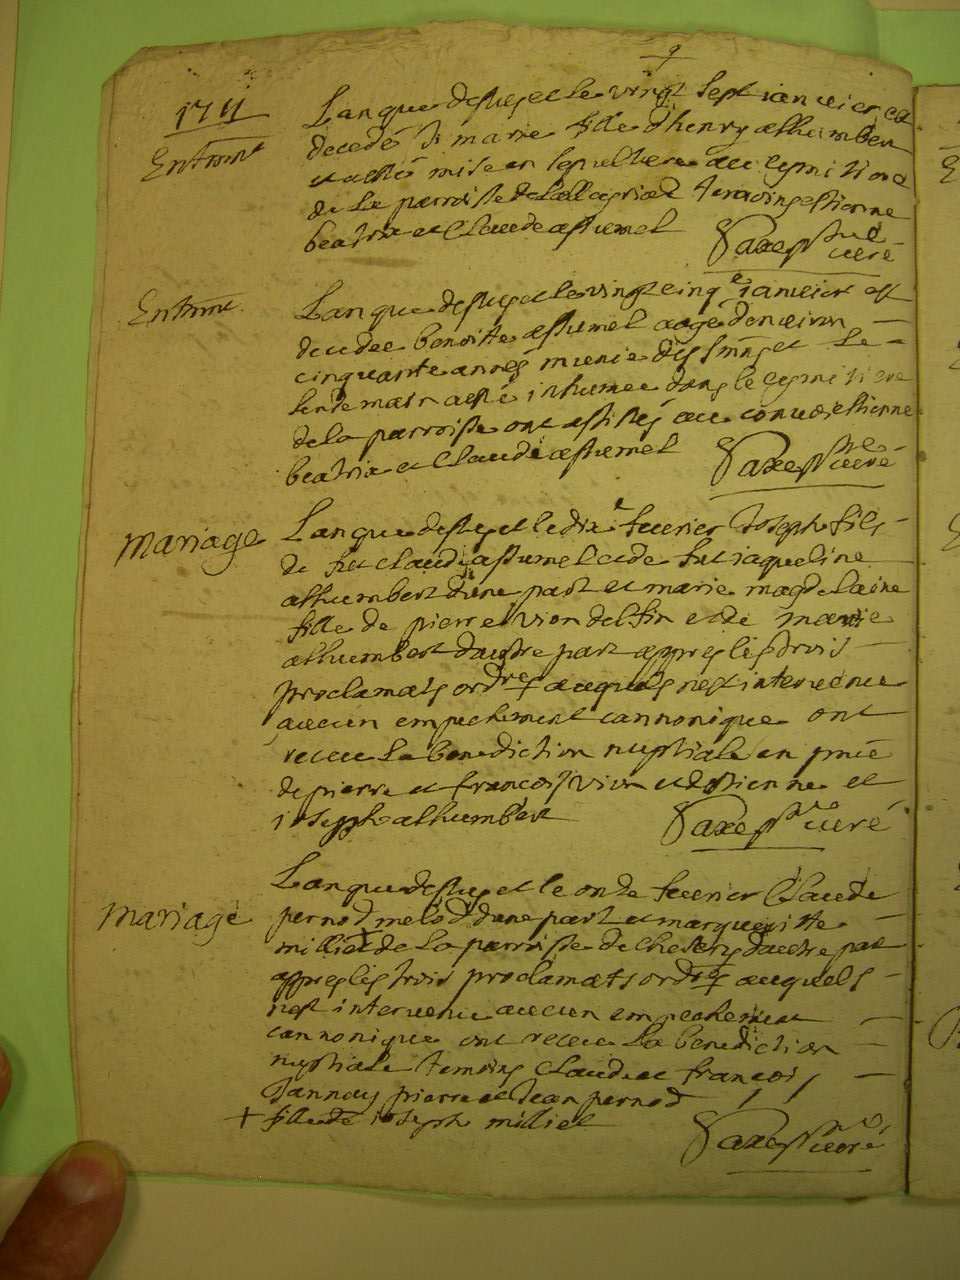 9
1711
Entrmnt
Lan que dessus et le vingt sept ianvier est
decedé marie fille d'henry alhumbert
et a esté mise en sepulture au cymitiere
de la parroisse temoins estienne
beatrix et Claude assumel
Saxe curé
Entrmnt
Lan que dessus et le vingt cinq ianvier est
decedee benoitte assumel aagé denviron
cinquante années munie des et le
lendemain a esté inhumee dans le cymitiere
de la parroisse ont assistés au convoi estienne
beatrix et Claude assumel
Saxe curé
Mariage
Lan que dessus et le dix fevrier Joseph fils
de fut claude assumel et de fut iaqueline
alhumbert d'une part et marie magdelaine
fille de pierre vion delfin et de marie
alhumbert dautre part appres les trois
proclamats ordres auquels nest intervenu
aucun empechement cannonique ont
receu la benediction nuptiale en pnce
de pierre et francois vion et destienne et
ioseph alhumbert
Saxe curé
Mariage
Lan que dessus et le onze fevrier Claude
pernod melod d'une part et marguerite
milliet de la parroisse de chesery dautre part
appres les trois proclamats ordres auquels
nest intervenu aucun empechement
cannonique ont receu la benediction
nuptiale temoins Claude et francois
Tannay pierre et Jean pernod
+ fille de ioseph milliet
Saxe curé